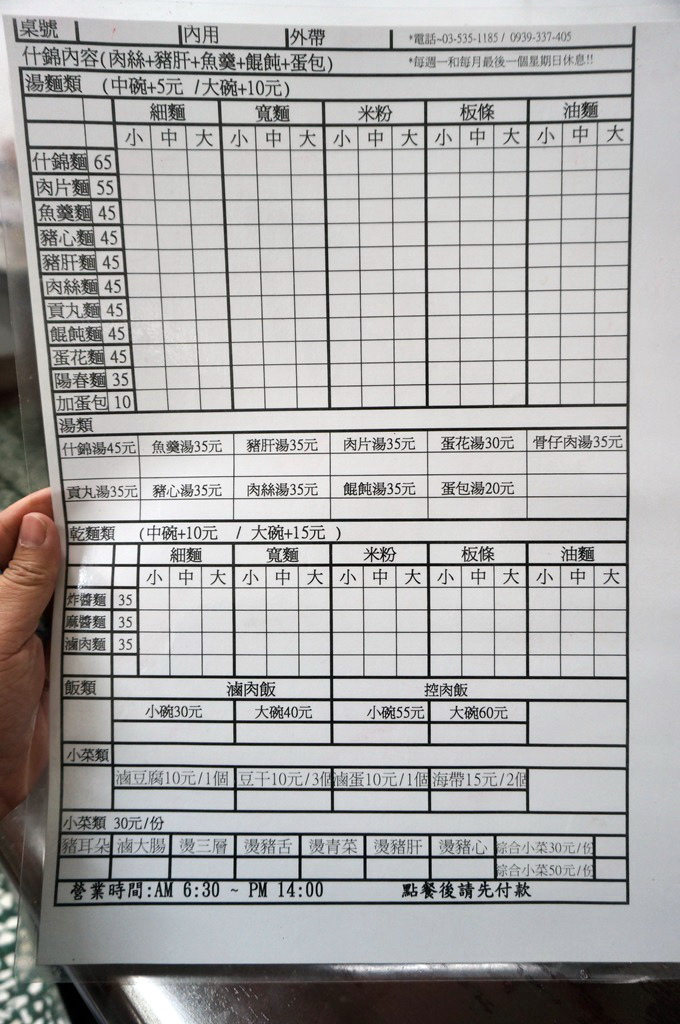 桌號 內用 外帶 *電話~03-535-1185 / 0939-337-405
什錦內容(肉絲+豬肝+魚羹+餛飩+蛋包) *每週一和每月最後一個星期日休息!!
湯麵類 (中碗+5元 /大碗+10元)
細麵 寬麵 米粉 板條 油麵
小 中 大 小 中 大 小 中 大 小 中 大 小 中 大
什錦麵 65
肉片麵 55
魚羹麵 45
豬心麵 45
豬肝麵 45
肉絲麵 45
貢丸麵 45
餛飩麵 45
蛋花麵 45
陽春麵 35
加蛋包 10
湯類
什錦湯45元 魚羹湯35元 豬肝湯35元 肉片湯35元 蛋花湯30元 骨仔肉湯35元
貢丸湯35元 豬心湯35元 肉絲湯35元 餛飩湯35元 蛋包湯20元
乾麵類 (中碗+10元 / 大碗+15元 )
細麵 寬麵 米粉 板條 油麵
小 中 大 小 中 大 小 中 大 小 中 大 小 中 大
炸醬麵 35
麻醬麵 35
滷肉麵 35
飯類 滷肉飯 控肉飯
小碗30元 大碗40元 小碗55元 大碗60元
小菜類
滷豆腐10元/1個 豆干10元/3個 滷蛋10元/1個 海帶15元/2個
小菜類 30元/份
豬耳朵 滷大腸 燙三層 燙豬舌 燙青菜 燙豬肝 燙豬心 綜合小菜30元/份
綜合小菜50元/份
營業時間:AM 6:30 ~ PM 14:00 點餐後請先付款